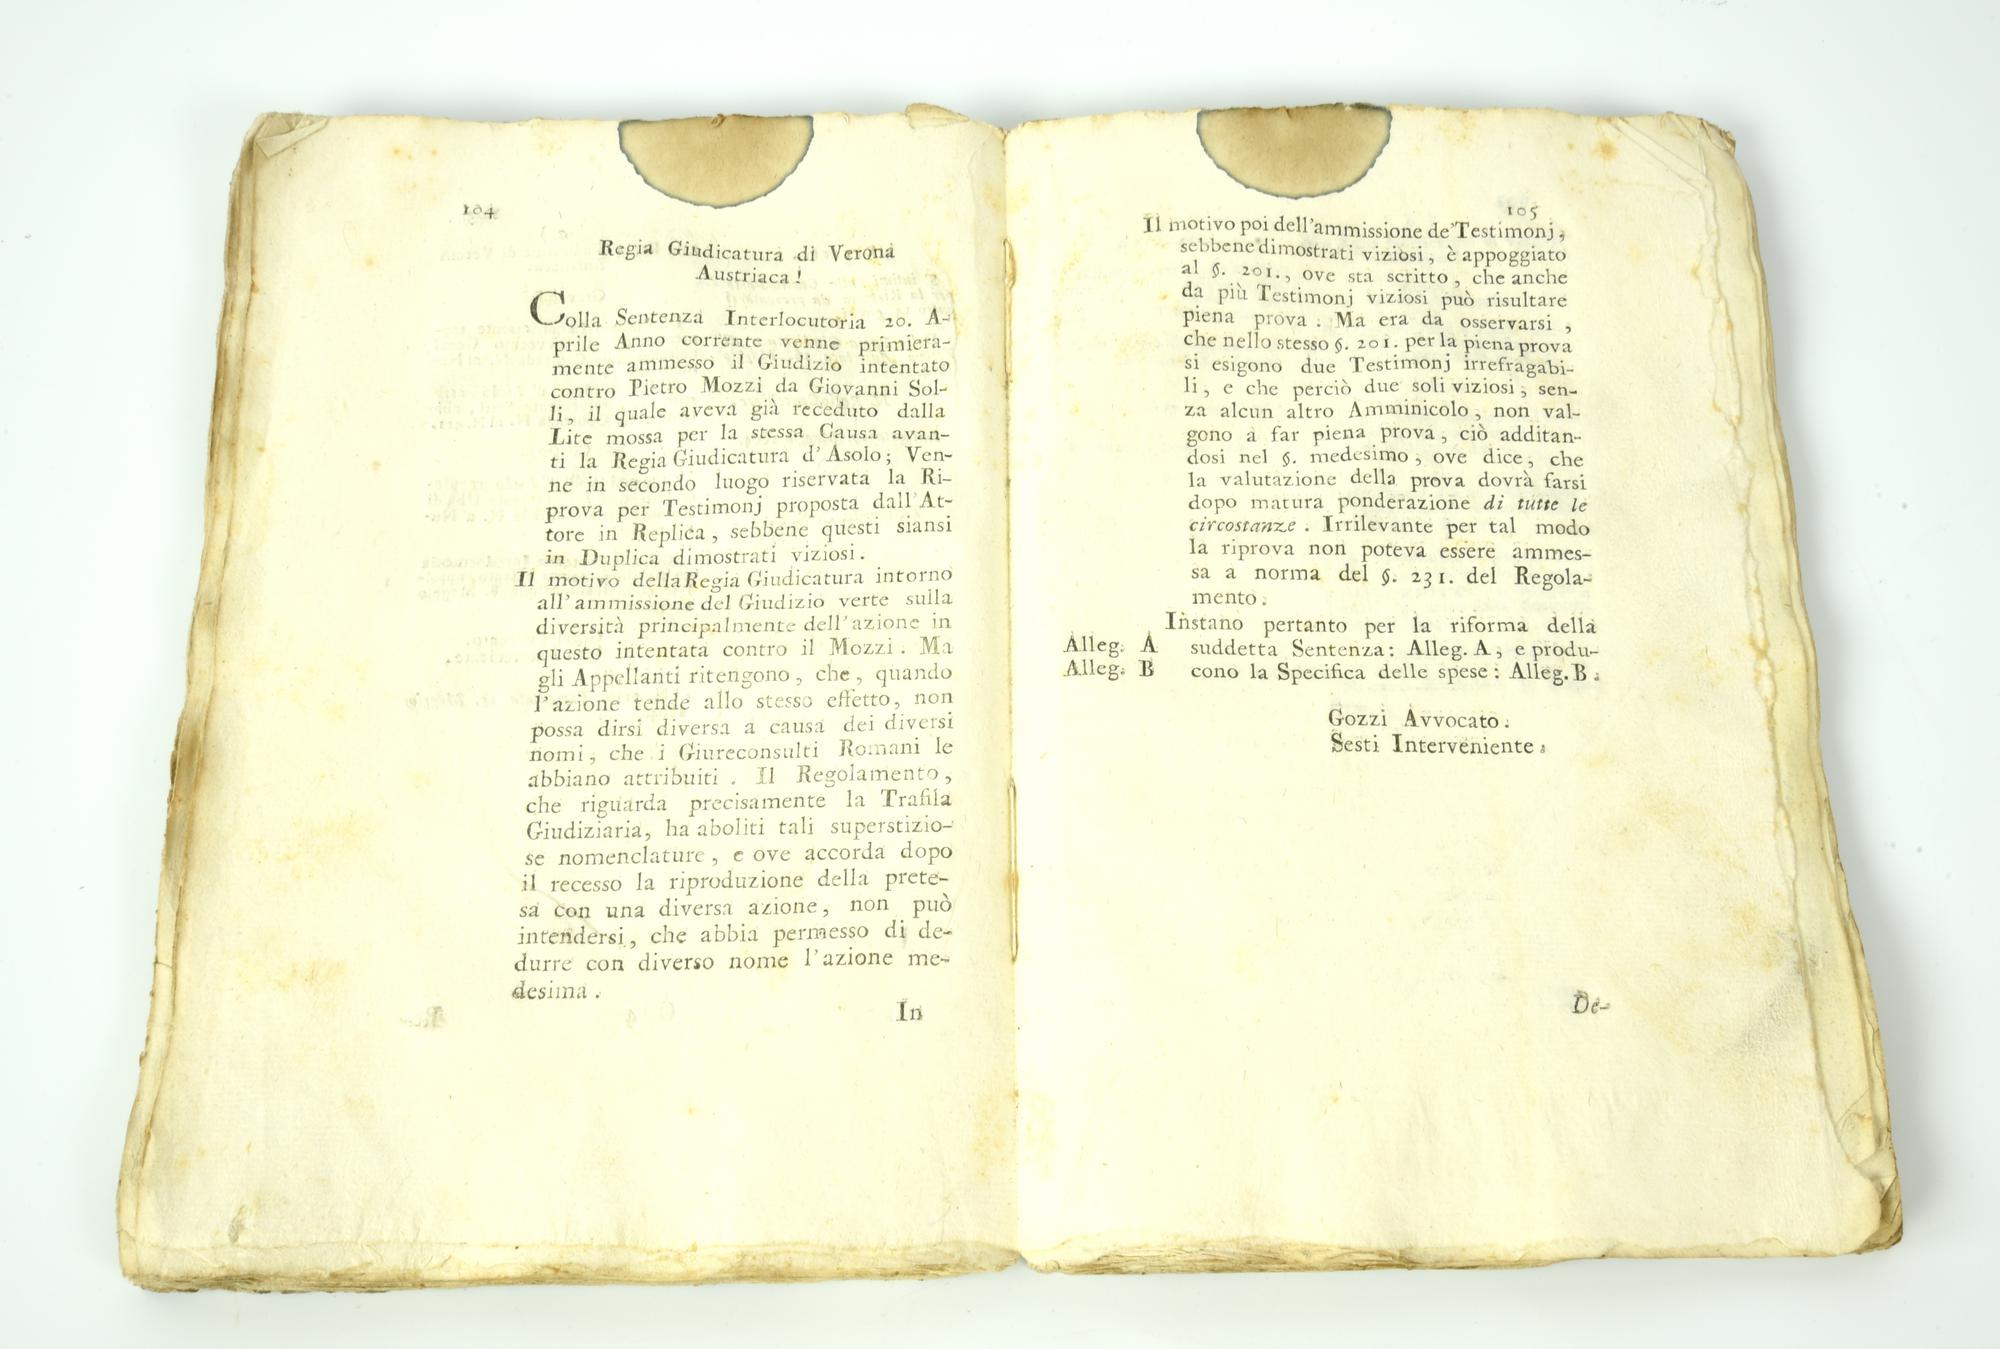 104
Regia Giudicatura di Verona
Austriaca!
Colla Sentenza Interlocutoria 20. A-
prile Anno corrente venne primiera-
mente ammesso il Giudizio intentato
contro Pietro Mozzi da Giovanni Sol-
li, il quale aveva già receduto dalla
Lite mossa per la stessa Causa avan-
ti la Regia Giudicatura d'Asolo; Ven-
ne in secondo luogo riservata la Ri-
prova per Testimonj proposta dall'At-
tore in Replica, sebbene questi siansi
in Duplica dimostrati viziosi.
Il motivo della Regia Giudicatura intorno
all'ammissione del Giudizio verte sulla
diversità principalmente dell'azione in
questo intentata contro il Mozzi. Ma
gli Appellanti ritengono, che, quando
l'azione tende allo stesso effetto, non
possa dirsi diversa a causa dei diversi
nomi, che i Giureconsulti Romani le
abbiano attribuiti. Il Regolamento,
che riguarda precisamente la Trafila
Giudiziaria, ha aboliti tali superstizio-
se nomenclature, e ove accorda dopo
il recesso la riproduzione della prete-
sa con una diversa azione, non può
intendersi, che abbia permesso di de-
durre con diverso nome l'azione me-
desima.
In
105
Il motivo poi dell'ammissione de' Testimonj,
sebbene dimostrati viziosi, è appoggiato
al §. 201., ove sta scritto, che anche
da più Testimonj viziosi può risultare
piena prova. Ma era da osservarsi,
che nello stesso §. 201. per la piena prova
si esigono due Testimonj irrefragabi-
li, e che perciò due soli viziosi, sen-
za alcun altro Amminicolo, non val-
gono a far piena prova, ciò additan-
dosi nel §. medesimo, ove dice, che
la valutazione della prova dovrà farsi
dopo matura ponderazione di tutte le
circostanze. Irrilevante per tal modo
la riprova non poteva essere ammes-
sa a norma del §. 231. del Regola-
mento.
Instano pertanto per la riforma della
Alleg. A suddetta Sentenza: Alleg. A, e produ-
Alleg. B cono la Specifica delle spese: Alleg. B.
Gozzi Avvocato.
Sesti Interveniente.
De-